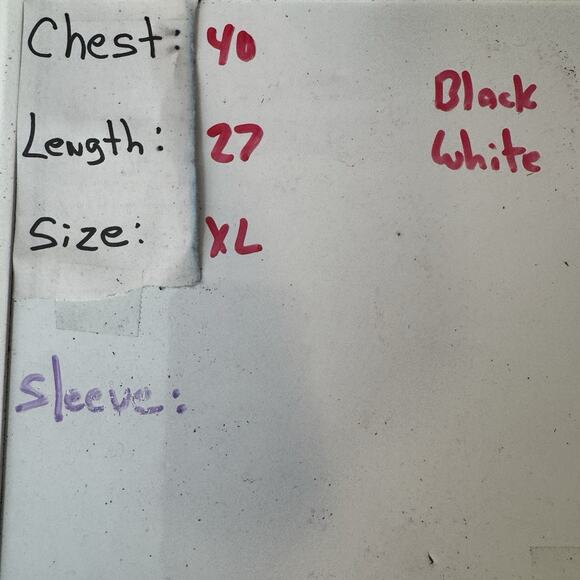 Chest: 40
Length: 27
Size: XL
Sleeve:
Black
White